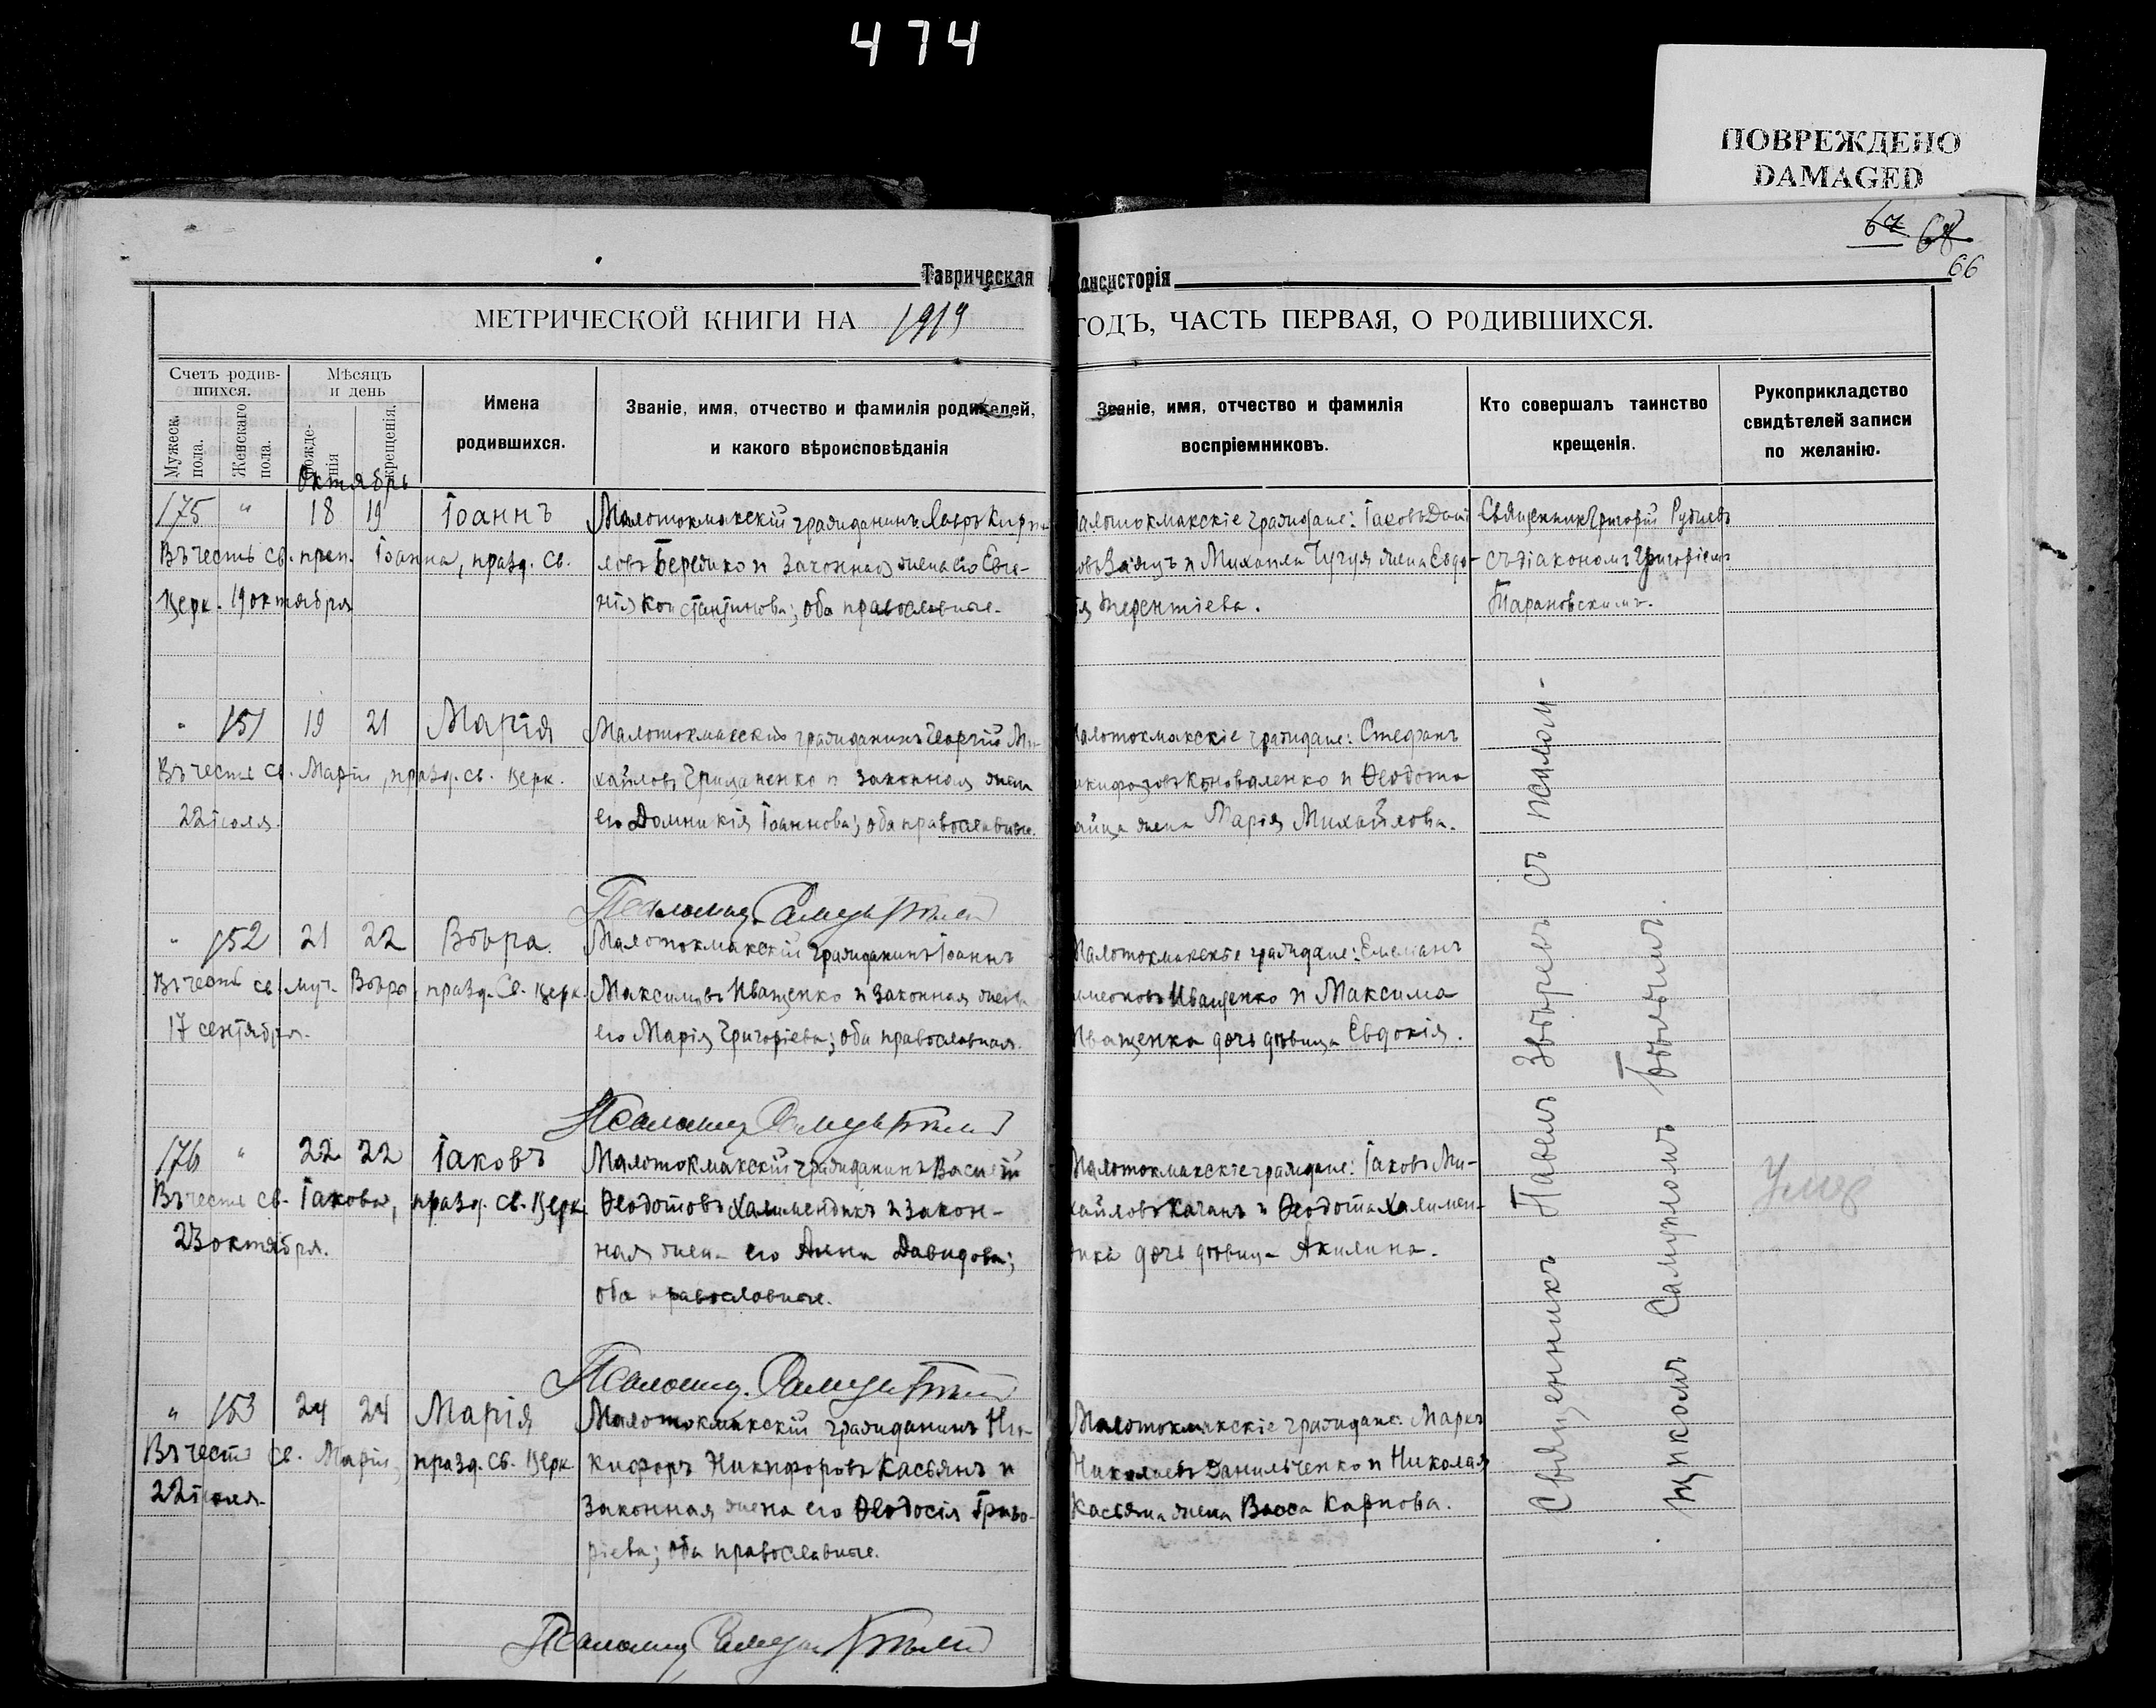 474
ПОВРЕЖДЕНО
DAMAGED
67 68
66
Таврическая
Консисторія
МЕТРИЧЕСКОЙ КНИГИ НА 1919
ГОДЪ, ЧАСТЬ ПЕРВАЯ, О РОДИВШИХСЯ.
Счетъ родив-
шихся.
Мужеск. пола.
Женскаго пола.
Мѣсяцъ
и день
рожде-
нія
крещенія.
Имена
родившихся.
Званіе, имя, отчество и фамилія родителей,
и какого вѣроисповѣданія
Званіе, имя, отчество и фамилія
воспріемниковъ.
Кто совершалъ таинство
крещенія.
Рукоприкладство
свидѣтелей записи
по желанію.
Октябрь
175 " 18 19 Іоаннъ
Въ честь св. преп. Іоанна, празд. св.
церк. 19 октября
Малотокмакскій гражданинъ Лавръ Кири-
ловъ и законная жена его Евге-
нія Константинова; оба православные.
алотокмакскіе граждане: Іаковъ
овъ Заяцъ и Михаила Чугуя жена Евдо-
ія Терентіева.
Священникъ Григорій
съ діакономъ Григоріемъ
Тарановскимъ.
" 151 19 21 Марія
Въ честь св. Маріи, празд. св. церк.
22 іюля.
Малотокмакскій гражданинъ Георгій Ми-
хайловъ Гриценко и законная жена
его Домникія Іоаннова; оба православные.
алотокмакскіе граждане: Стефанъ
икифоровъ Коноваленко и Ѳеодота
айца жена Марія Михайлова.
Псаломщ. Самуилъ Бѣлый
" 152 21 22 Вѣра.
Въ честь св. муч. Вѣры, празд. св. церк.
17 сентября.
Малотокмакскій гражданинъ Іоаннъ
Максимовъ Иващенко и законная жена
его Марія Григоріева; оба православные.
Малотокмакскіе граждане: Емеліанъ
имеоновъ Иващенко и Максима
Иващенка дочь дѣвица Евдокія.
Псаломщ. Самуилъ Бѣлый
176 " 22 22 Іаковъ
Въ честь св. Іакова, празд. св. церк.
23 октября.
Малотокмакскій гражданинъ Василій
Ѳеодотовъ Халимендикъ и закон-
ная жена его Анна Давидова;
оба православные.
Малотокмакскіе граждане: Іаковъ Ми-
хайловъ Качанъ и Ѳеодота Халимен-
дика дочь дѣвица Акилина.
Умер
Псаломщ. Самуилъ Бѣлый
" 153 24 24 Марія
Въ честь св. Маріи, празд. св. церк.
22 іюля.
Малотокмакскій гражданинъ Ни-
кифоръ Никифоровъ Касьянъ и
законная жена его Ѳеодосія Григо-
ріева; оба православные.
Малотокмакскіе граждане: Маркъ
Николаевъ Данильченко и Николая
Касьяна жена Васса Карпова.
Псаломщ. Самуилъ Бѣлый
Священникъ Павелъ Звѣревъ съ псалом-
щикомъ Самуиломъ Бѣлымъ.